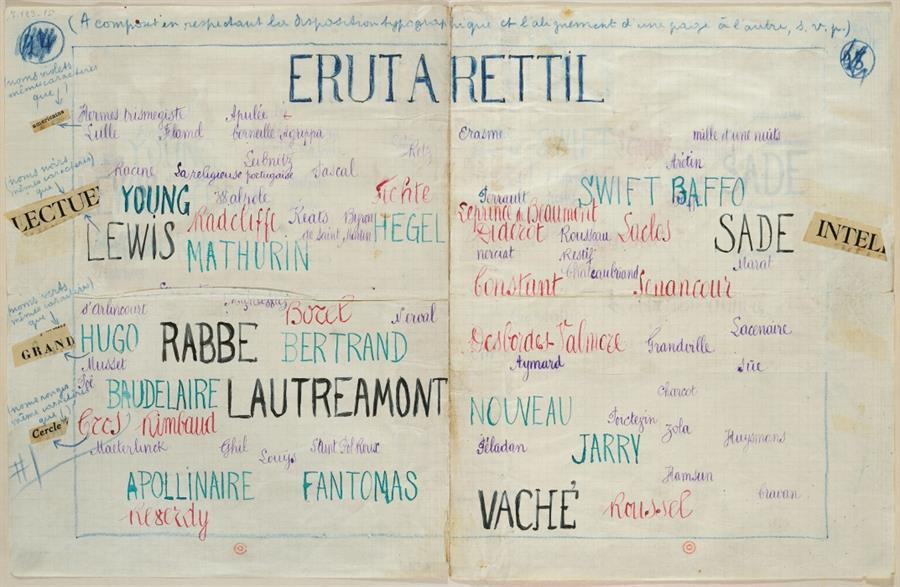 (A composer en respectant la disposition typographique et l'alignement d'une page à l'autre, s.v.p.)
ERUTARETTIL
(noms violets
même caractères
que ↓)
américains
Hermes trismegiste Apulée
Lulle Flamel Corneille Agrippa
Retz
Erasme mille et une nuits
Arétin
Leibnitz
Racine La religieuse portugaise Pascal
(noms noirs
mêmes caractères
que ↓)
LECTUE
YOUNG Walpole Fichte
Perrault SWIFT BAFFO
Radcliffe Keats Byron HEGEL
de Saint Martin
Leprince de Beaumont
Diderot Rousseau Laclos SADE INTEL
LEWIS MATHURIN
nerciat Restif Marat
Chateaubriand
Constant Senancour
d'Arlincourt Borel Nerval
(noms verts
mêmes caractères
que ↓)
GRAND
HUGO RABBE BERTRAND
Desbordes-Valmore Grandville Lacenaire
Musset
Aymard Süe
Poë BAUDELAIRE LAUTREAMONT
(noms rouges
même caractères
que ↓)
Cercle
Cros Rimbaud
Charcot
NOUVEAU
Zola
Maeterlinck Ghil Saint Pol Roux
Louÿs
Péladan JARRY Huysmans
APOLLINAIRE FANTOMAS
Hamsun
Cravan
Reverdy
VACHÉ Roussel